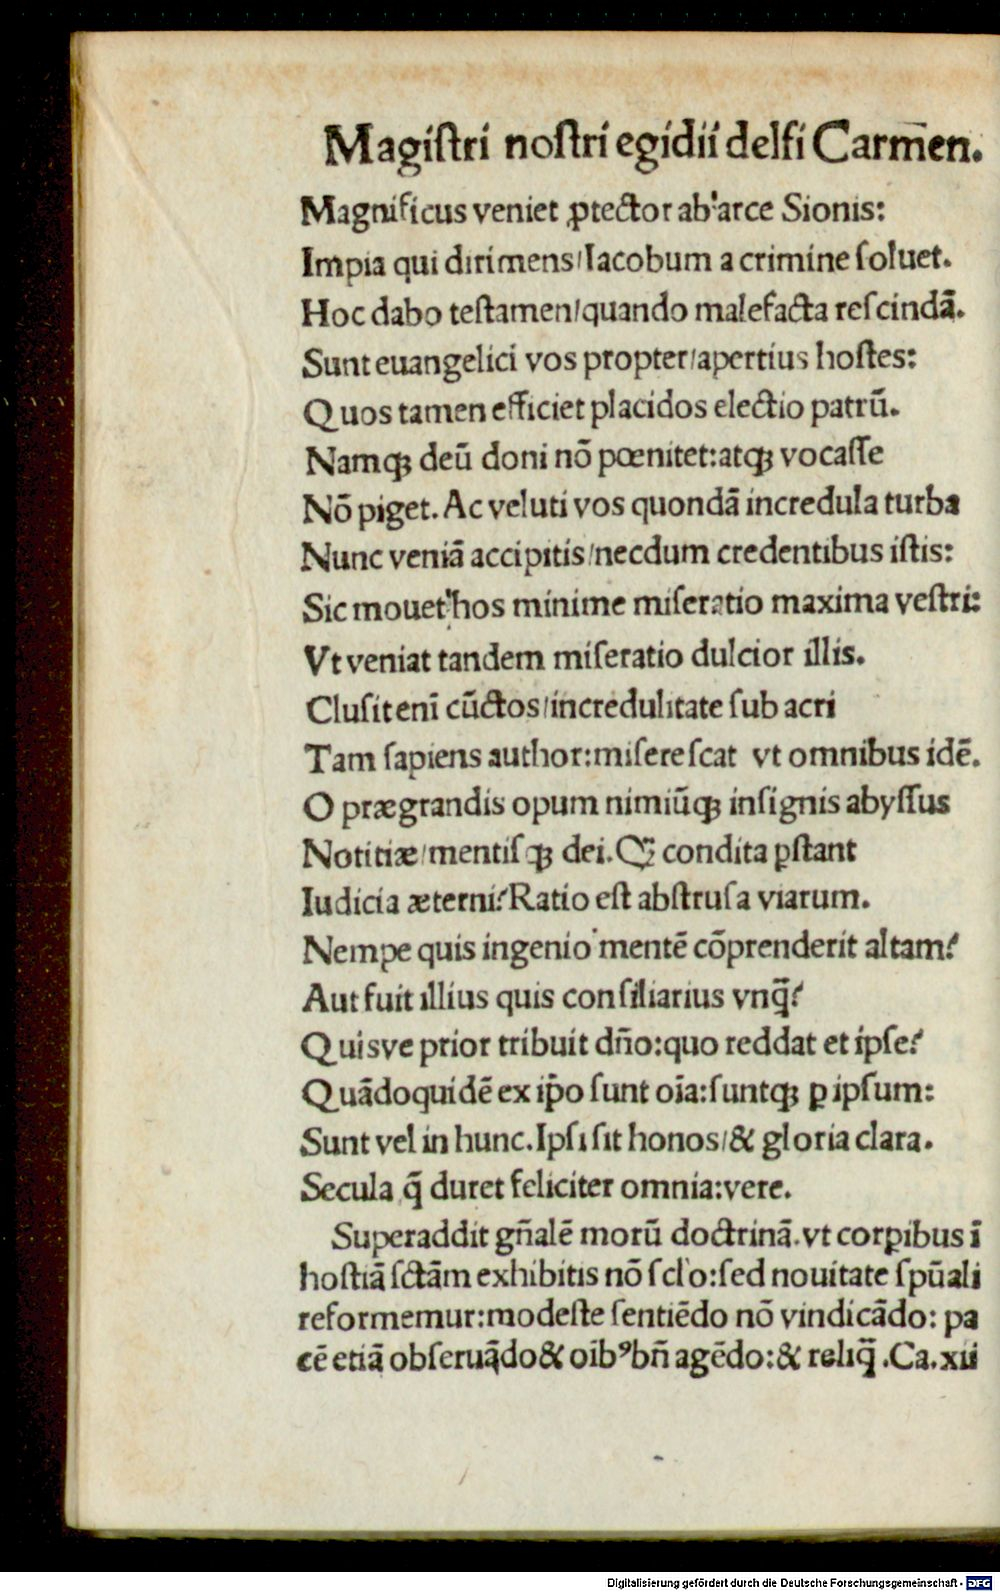 Magiſtri noſtri egidii delfi Carmē̄n.
Magnificus veniet ꝓtector ab'arce Sionis:
Impia qui dirimens/Iacobum a crimine ſoluet.
Hoc dabo teſtamen/quando malefacta reſcindā.
Sunt euangelici vos propter/apertius hoſtes:
Quos tamen efficiet placidos electio patrū.
Namqꝫ deū doni nō pœnitet:atqꝫ vocaſſe
Nō piget. Ac veluti vos quondā incredula turba
Nunc veniā accipitis/necdum credentibus iſtis:
Sic mouet'hos minime miſeratio maxima veſtri:
Vt veniat tandem miſeratio dulcior illis.
Cluſit enī cūctos/incredulitate ſub acri
Tam ſapiens author:miſereſcat vt omnibus idē.
O prægrandis opum nimiūqꝫ inſignis abyſſus
Notitiæ/mentiſqꝫ dei. Qꝫ̃ condita ꝑſtant
Iudicia æterni? Ratio eſt abſtruſa viarum.
Nempe quis ingenio'mentē cōprenderit altam?
Aut fuit illius quis conſiliarius vnq̄?
Quisve prior tribuit dño:quo reddat et ipſe?
Quādoquidē ex ip̄o ſunt oīa:ſuntqꝫ ꝑ ipſum:
Sunt vel in hunc. Ipſi ſit honos/& gloria clara.
Secula q̄ duret feliciter omnia:vere.
Superaddit gñalē morū doctrinā. vt corꝑibus ī
hoſtiā ſctām exhibitis nō ſcl'o:ſed nouitate ſpūali
reformemur:modeſte ſentiēdo nō vindicādo: pa
cē etiā obſeruādo & oībꝰ bñ agēdo:& reliq̄. Ca. xii
Digitalisierung gefördert durch die Deutsche Forschungsgemeinschaft - DFG